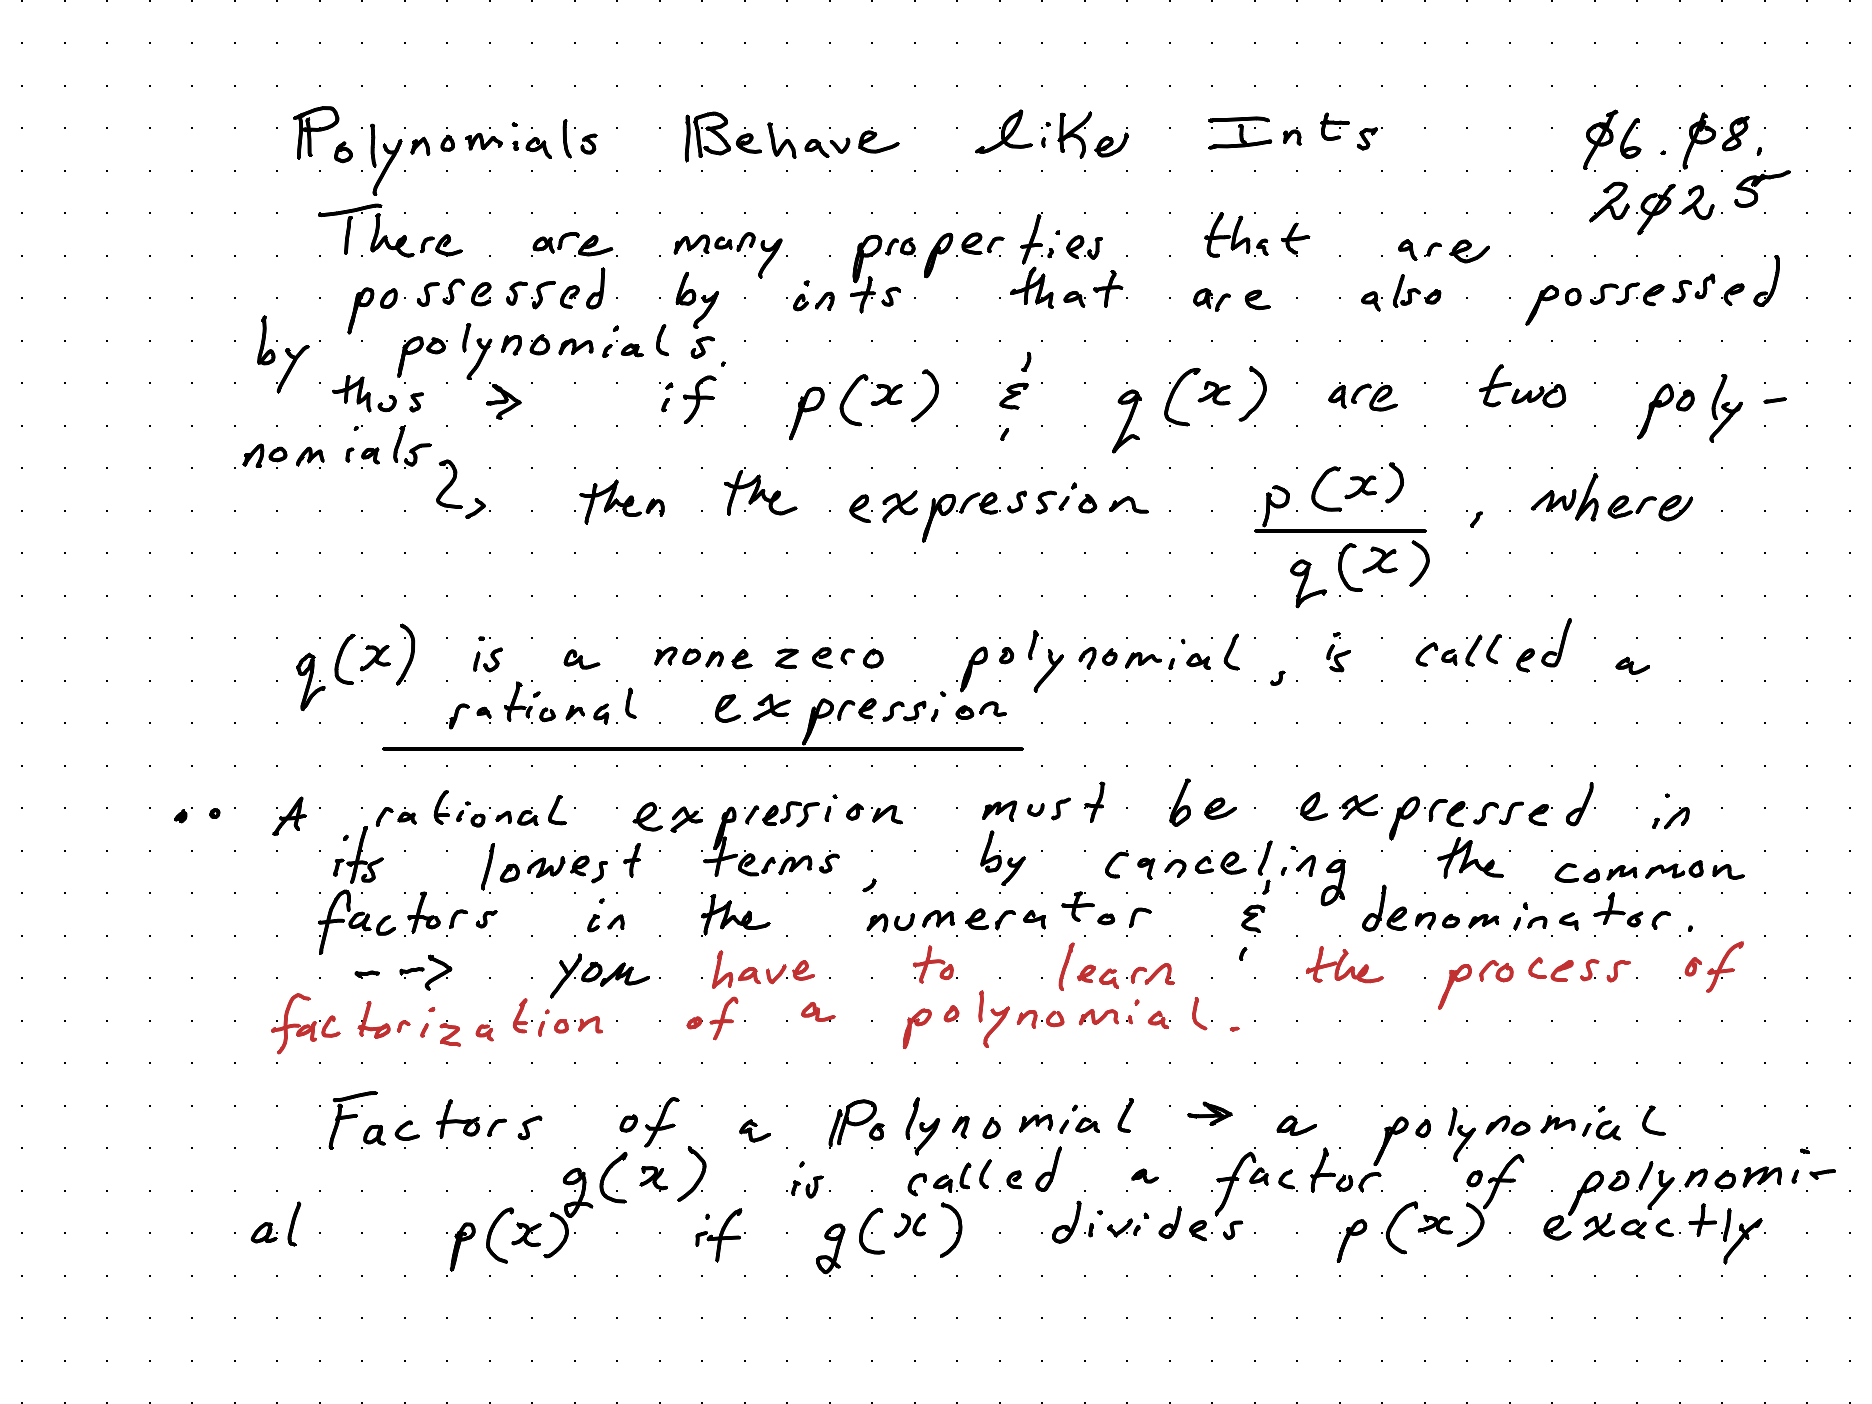 Polynomials Behave like Ints 06.08.
2025
There are many properties that are
possessed by ints that are also possessed
by polynomials.
thus → if p(x) & q(x) are two poly-
nomials, then the expression p(x)/q(x), where
q(x) is a nonezero polynomial, is called a
rational expression
•• A rational expression must be expressed in
its lowest terms, by canceling the common
factors in the numerator & denominator.
--> you have to learn the process of
factorization of a polynomial.
Factors of a Polynomial → a polynomial
g(x) is called a factor of polynomi-
al p(x) if g(x) divides p(x) exactly